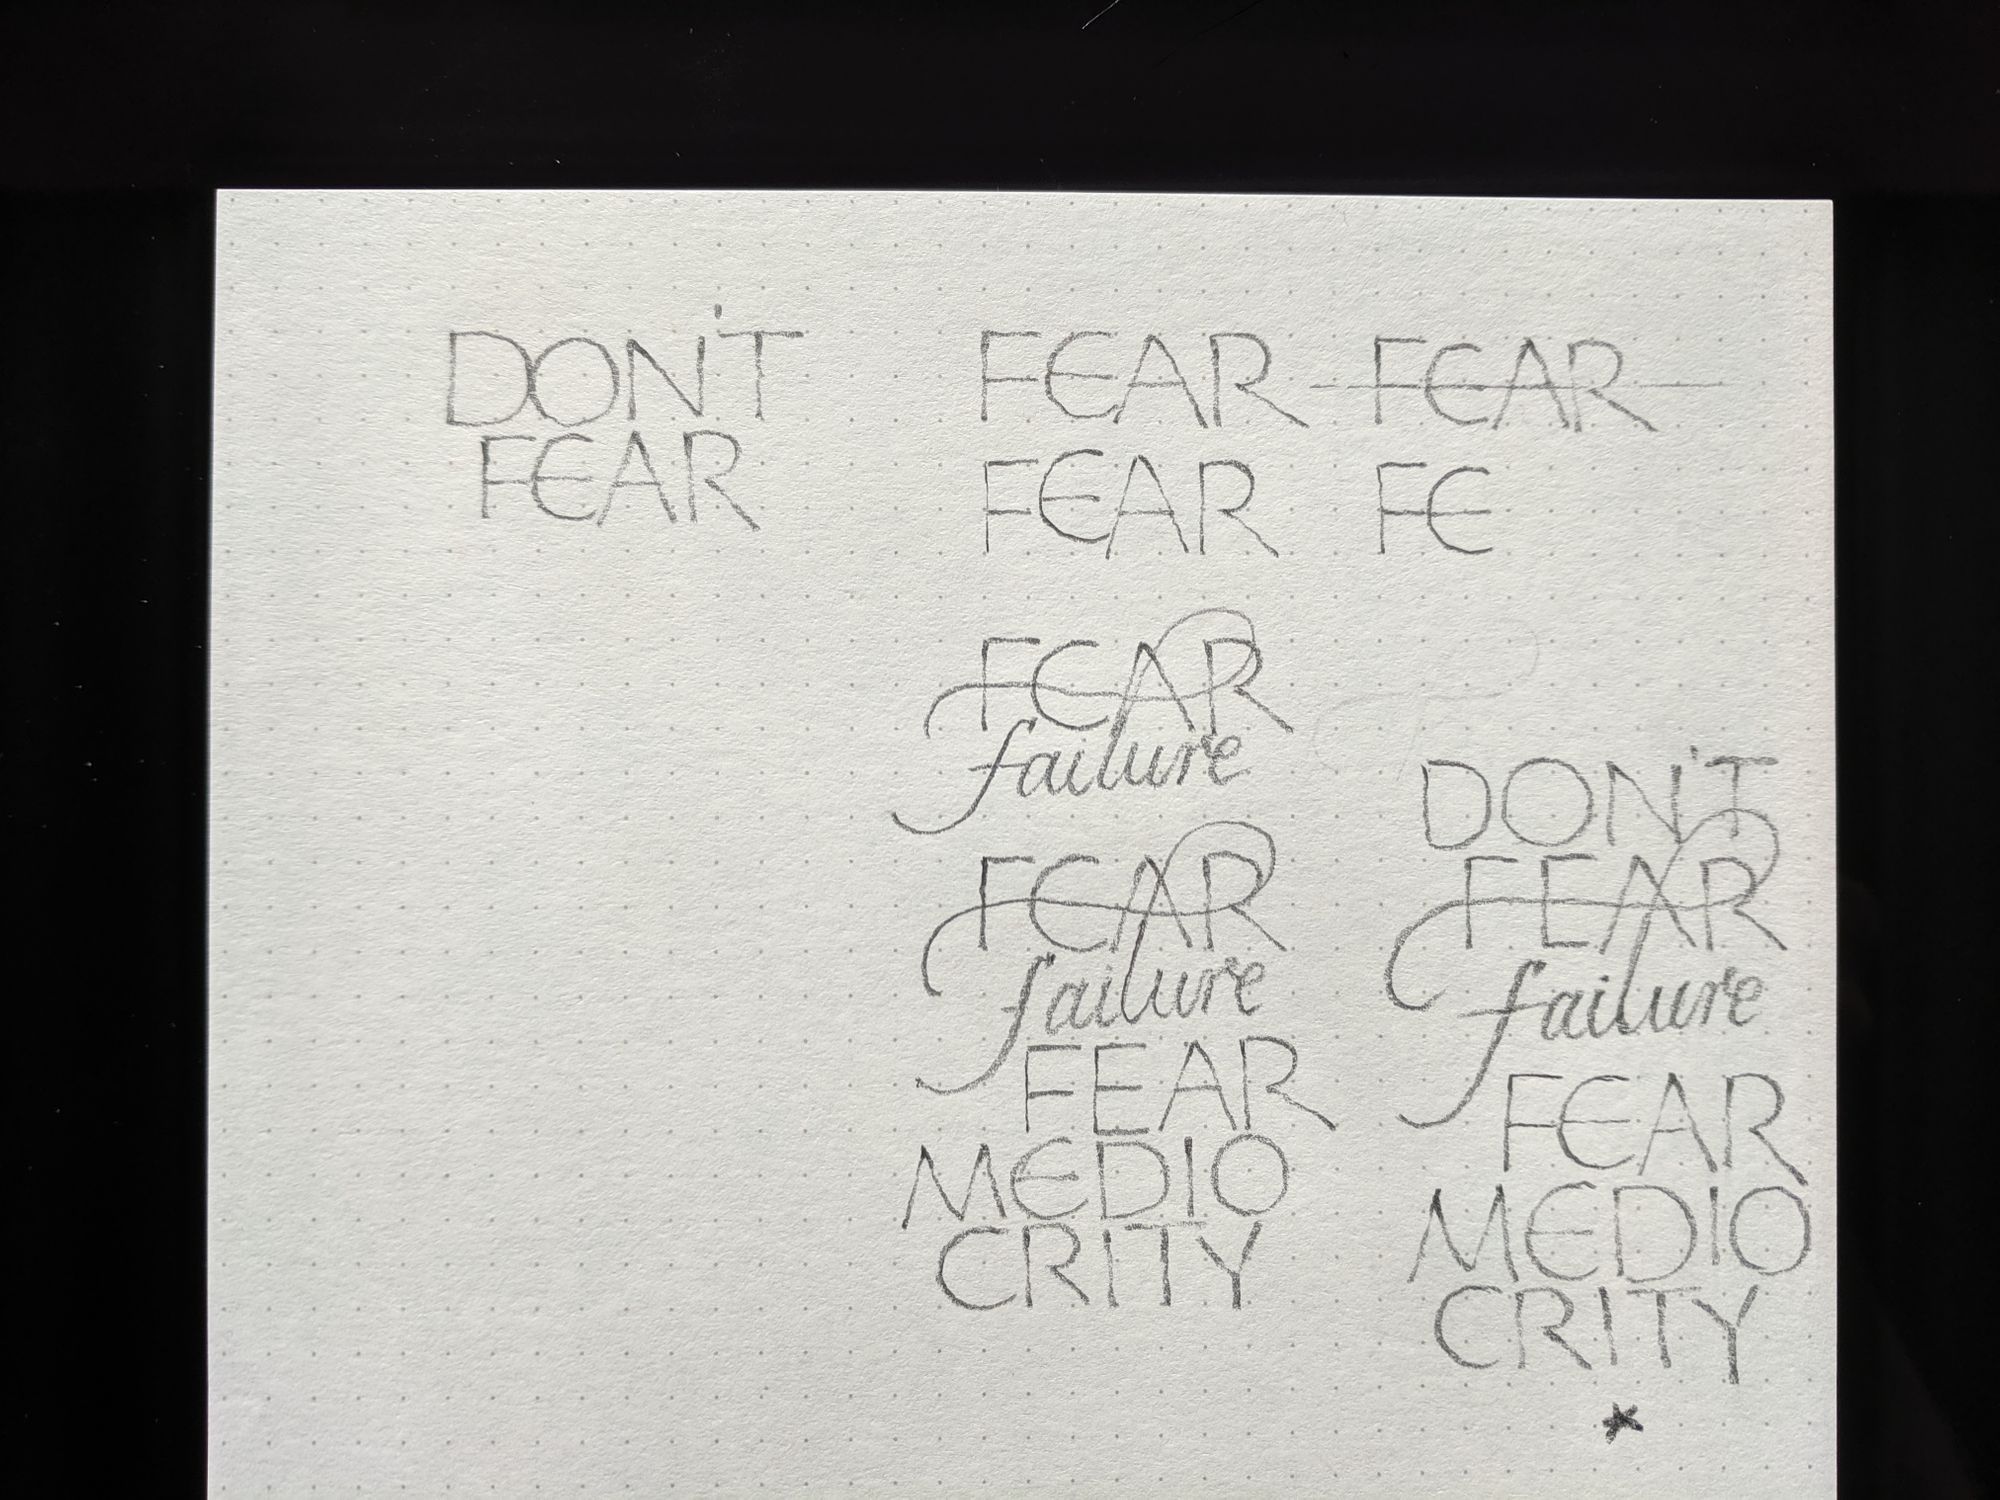 DON'T
FEAR
FEAR FEAR
FEAR FE
FEAR
failure
FEAR
failure
FEAR
MEDIO
CRITY
DON'T
FEAR
failure
FEAR
MEDIO
CRITY